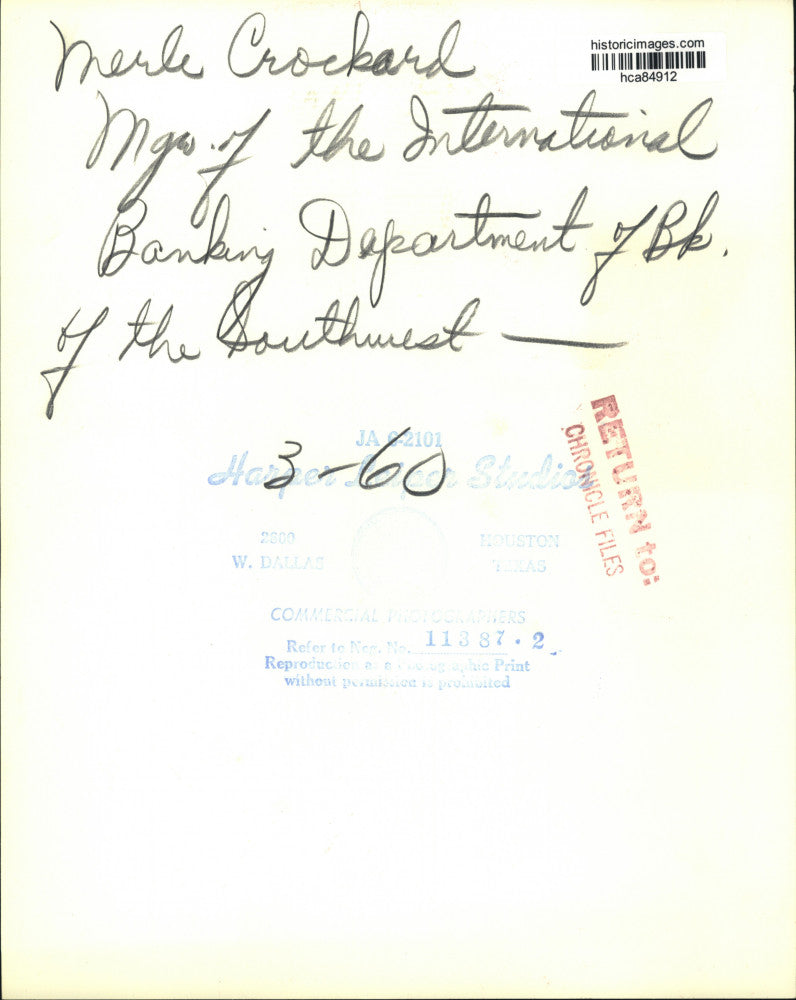 Merle Crockard
historicimages.com
hca84912
Mgr. of the International
Banking Department of Bk.
of the Southwest —
JA 6-2101
3-60
Harper Studios
2600
W. DALLAS
HOUSTON
TEXAS
COMMERCIAL PHOTOGRAPHERS
Refer to Neg. No. 11387-2
Reproduction as a Photographic Print
without permission is prohibited
RETURN to:
CHRONICLE FILES